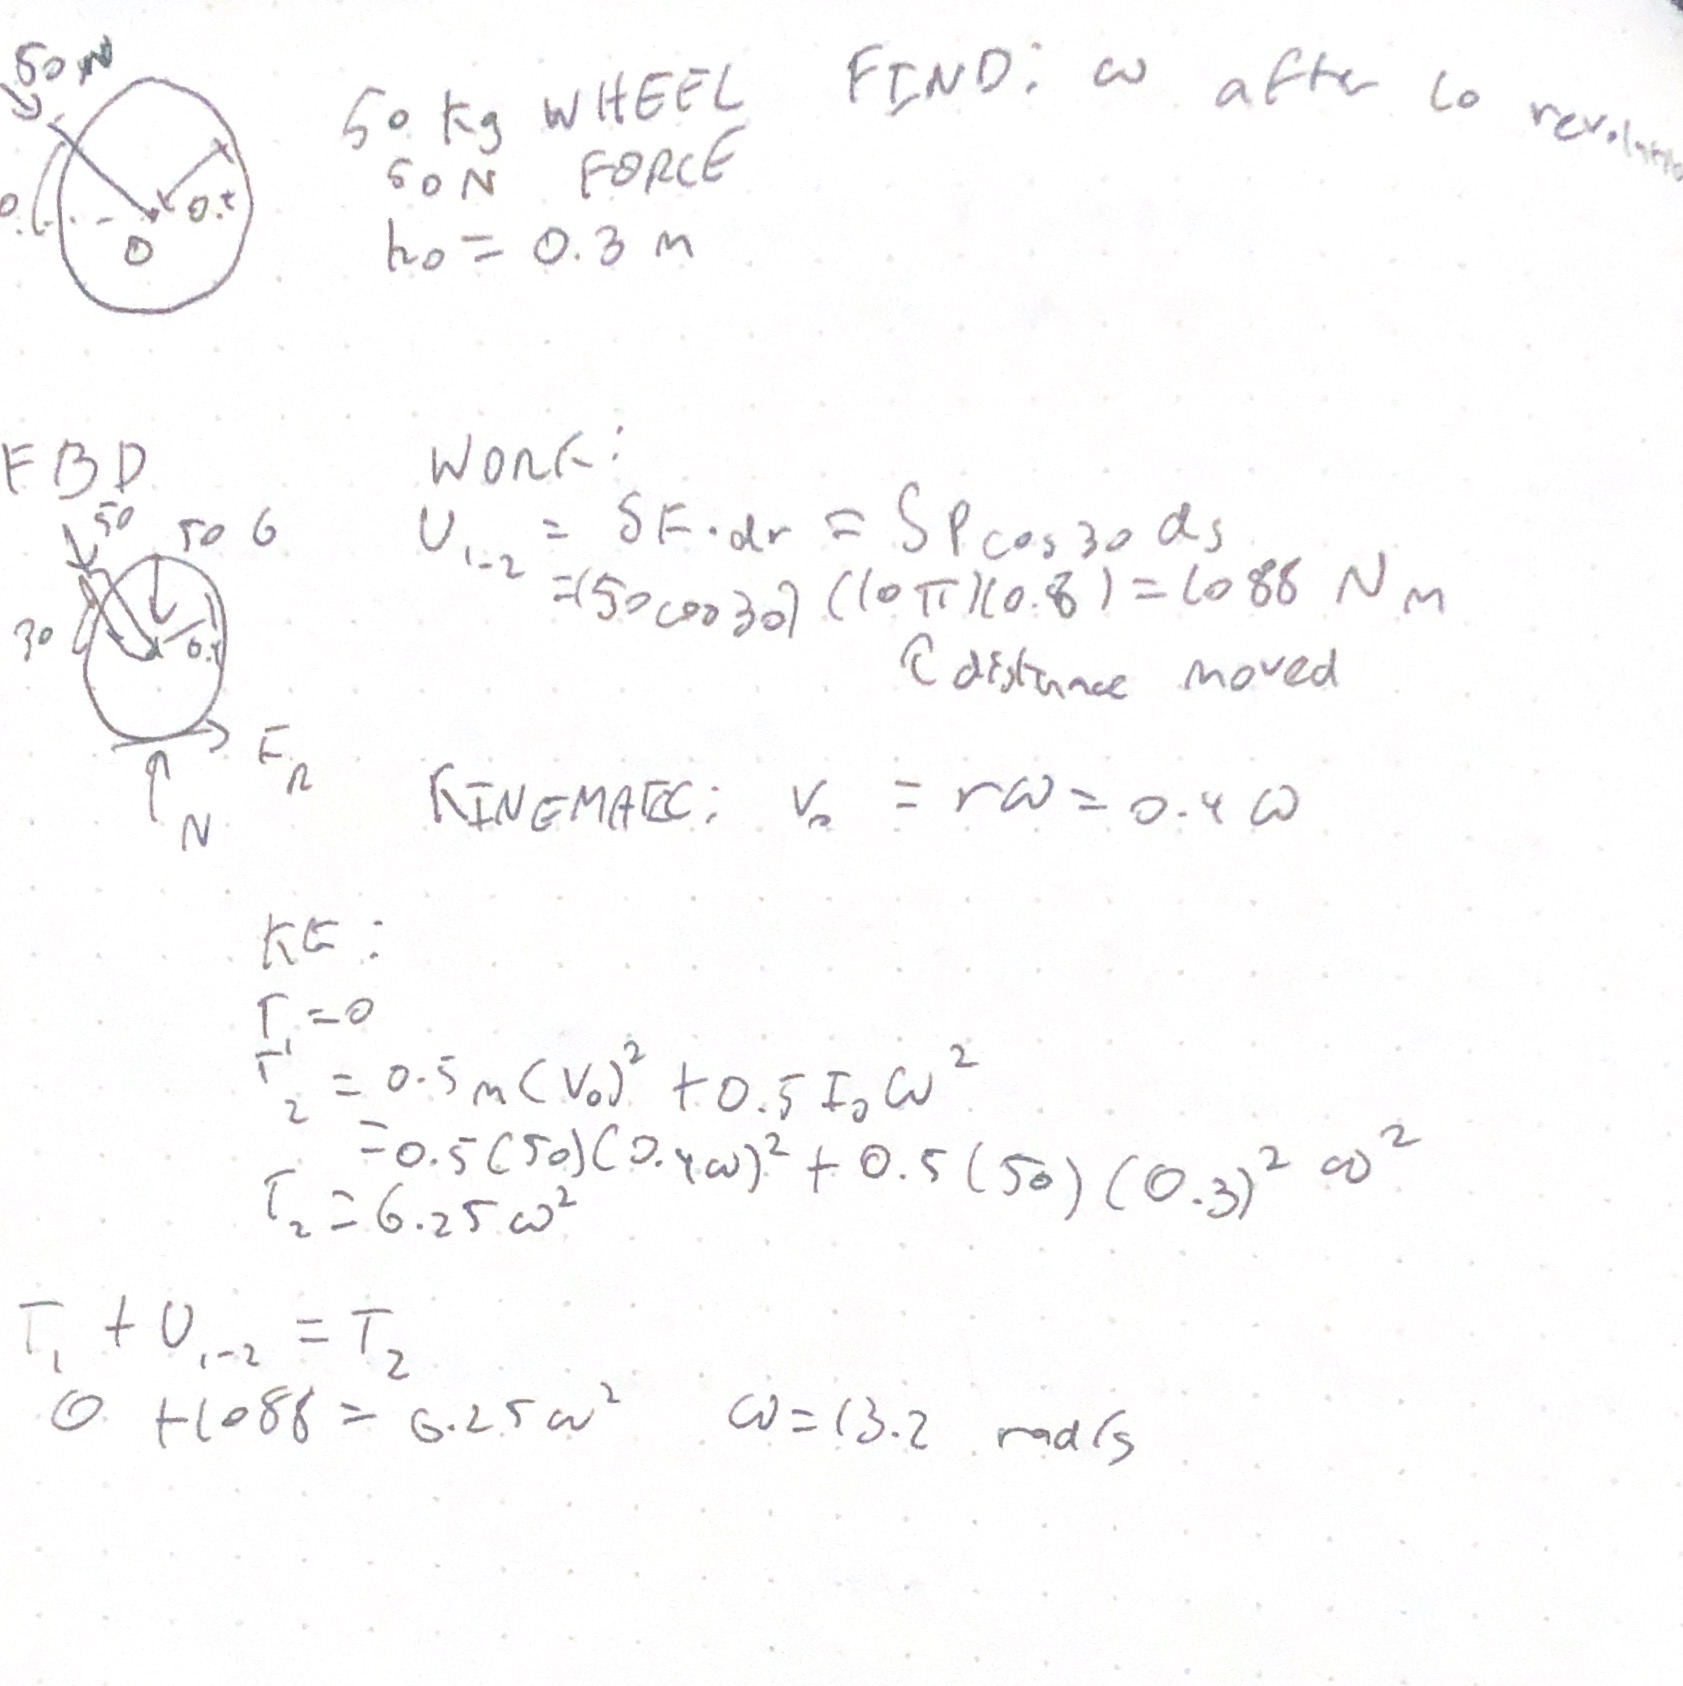 50N
50 kg WHEEL
50N FORCE
ko = 0.3 m
FIND: ω after 10
0.4
O
FBD
50
50 G
30
FR
N
WORK:
U1-2 = ∫F·dr = ∫P cos 30 ds
=(50cos30)(10π)(0.8) = 1088 Nm
distance moved
KINEMATIC: Vo = rω = 0.4ω
KE:
T1=0
T2 = 0.5m(Vo)² + 0.5 Io ω²
=0.5(50)(0.4ω)² + 0.5(50)(0.3)² ω²
T2 = 6.25ω²
T1 + U1-2 = T2
0 +1088 = 6.25ω² ω=13.2 rad/s